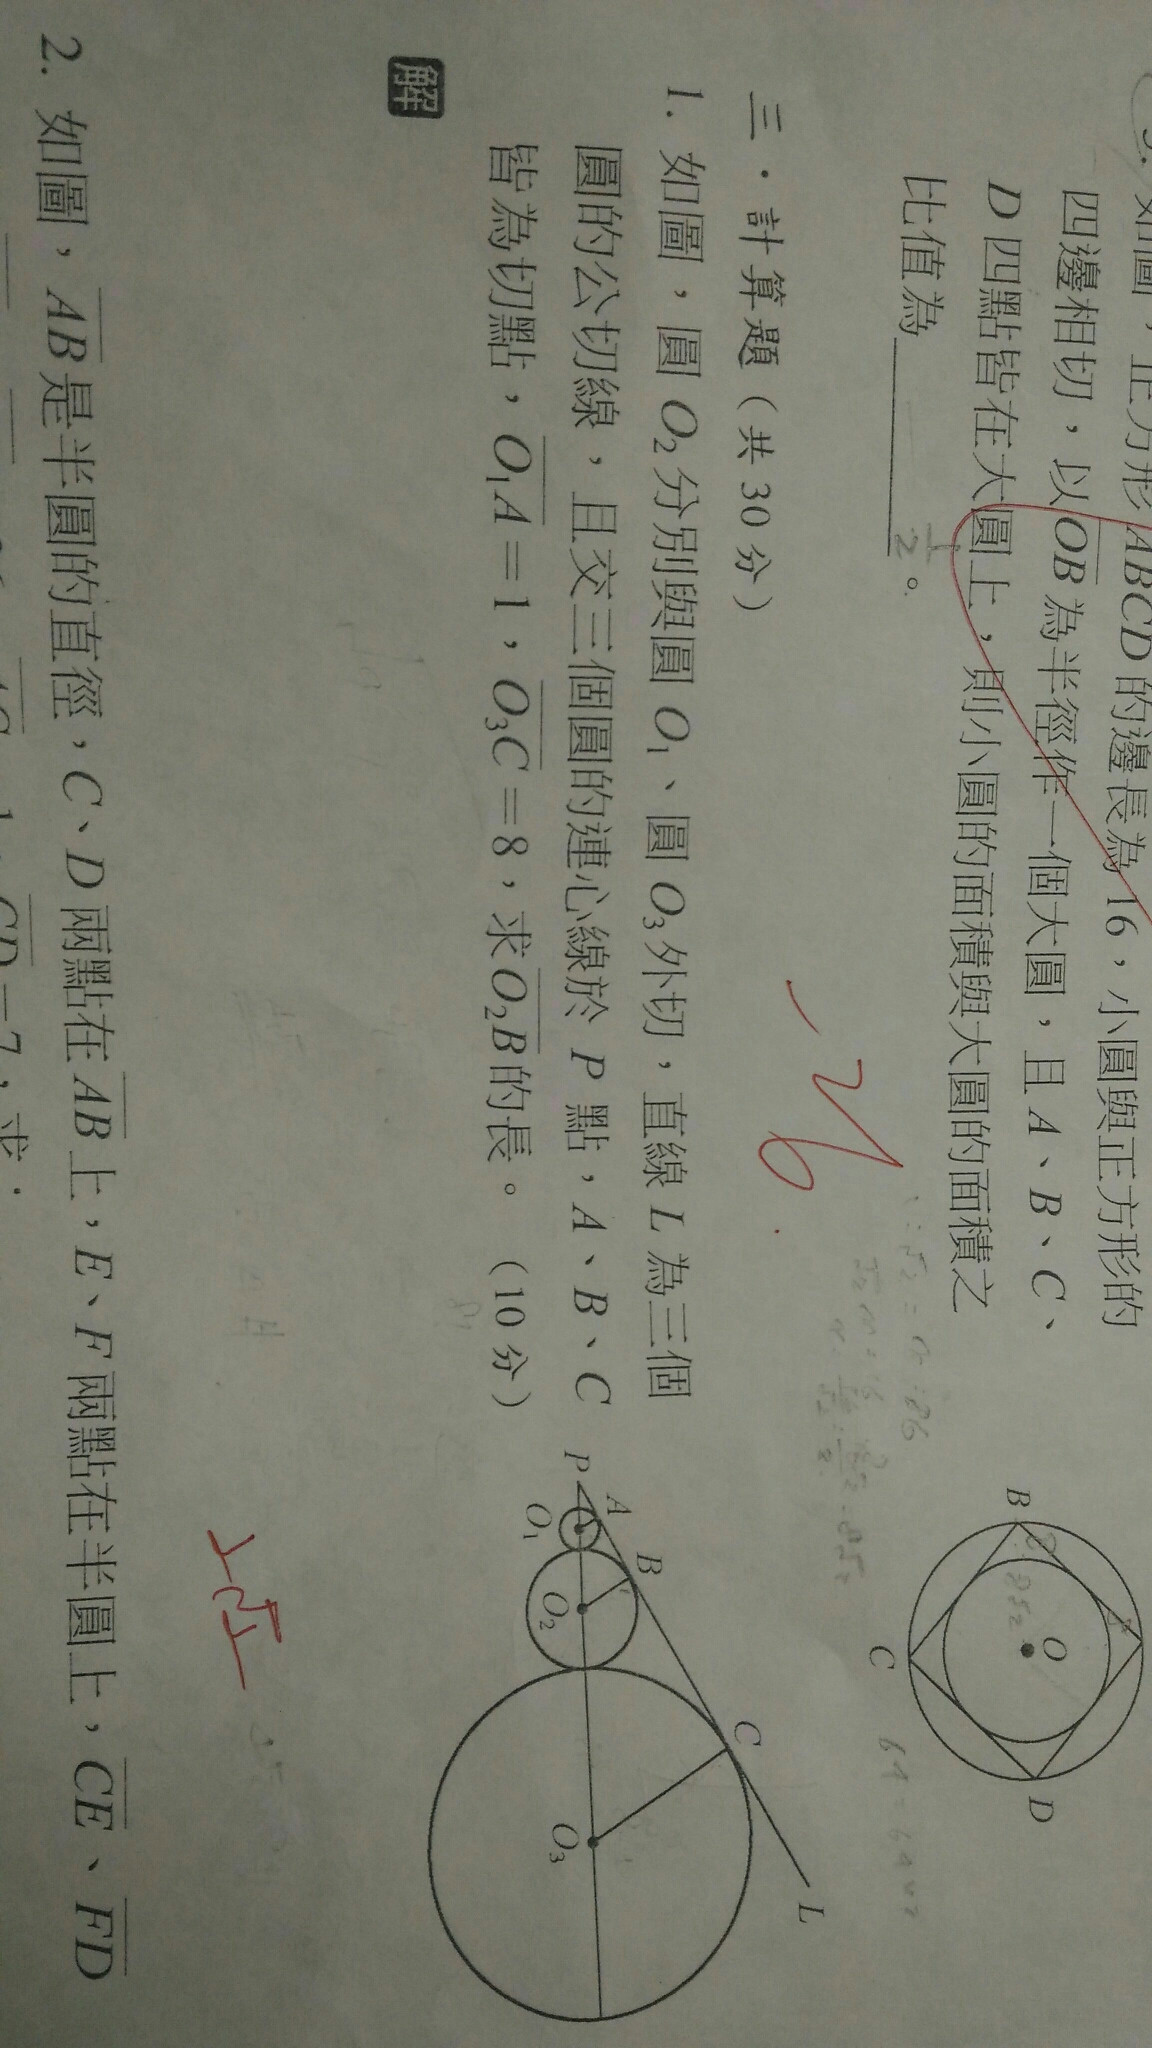 如圖，正方形ABCD的邊長為16，小圓與正方形的
四邊相切，以OB為半徑作一個大圓，且A、B、C、
D四點皆在大圓上，則小圓的面積與大圓的面積之
比值為 1/2 。
B
O
C
D
三．計算題（共30分）
1. 如圖，圓O₂分別與圓O₁、圓O₃外切，直線L為三個
圓的公切線，且交三個圓的連心線於P點，A、B、C
皆為切點，O₁A＝1，O₃C＝8，求O₂B的長。（10分）
P
A
B
C
L
O₁
O₂
O₃
解
2. 如圖，AB是半圓的直徑，C、D兩點在AB上，E、F兩點在半圓上，CE、FD
CD＝7，求：